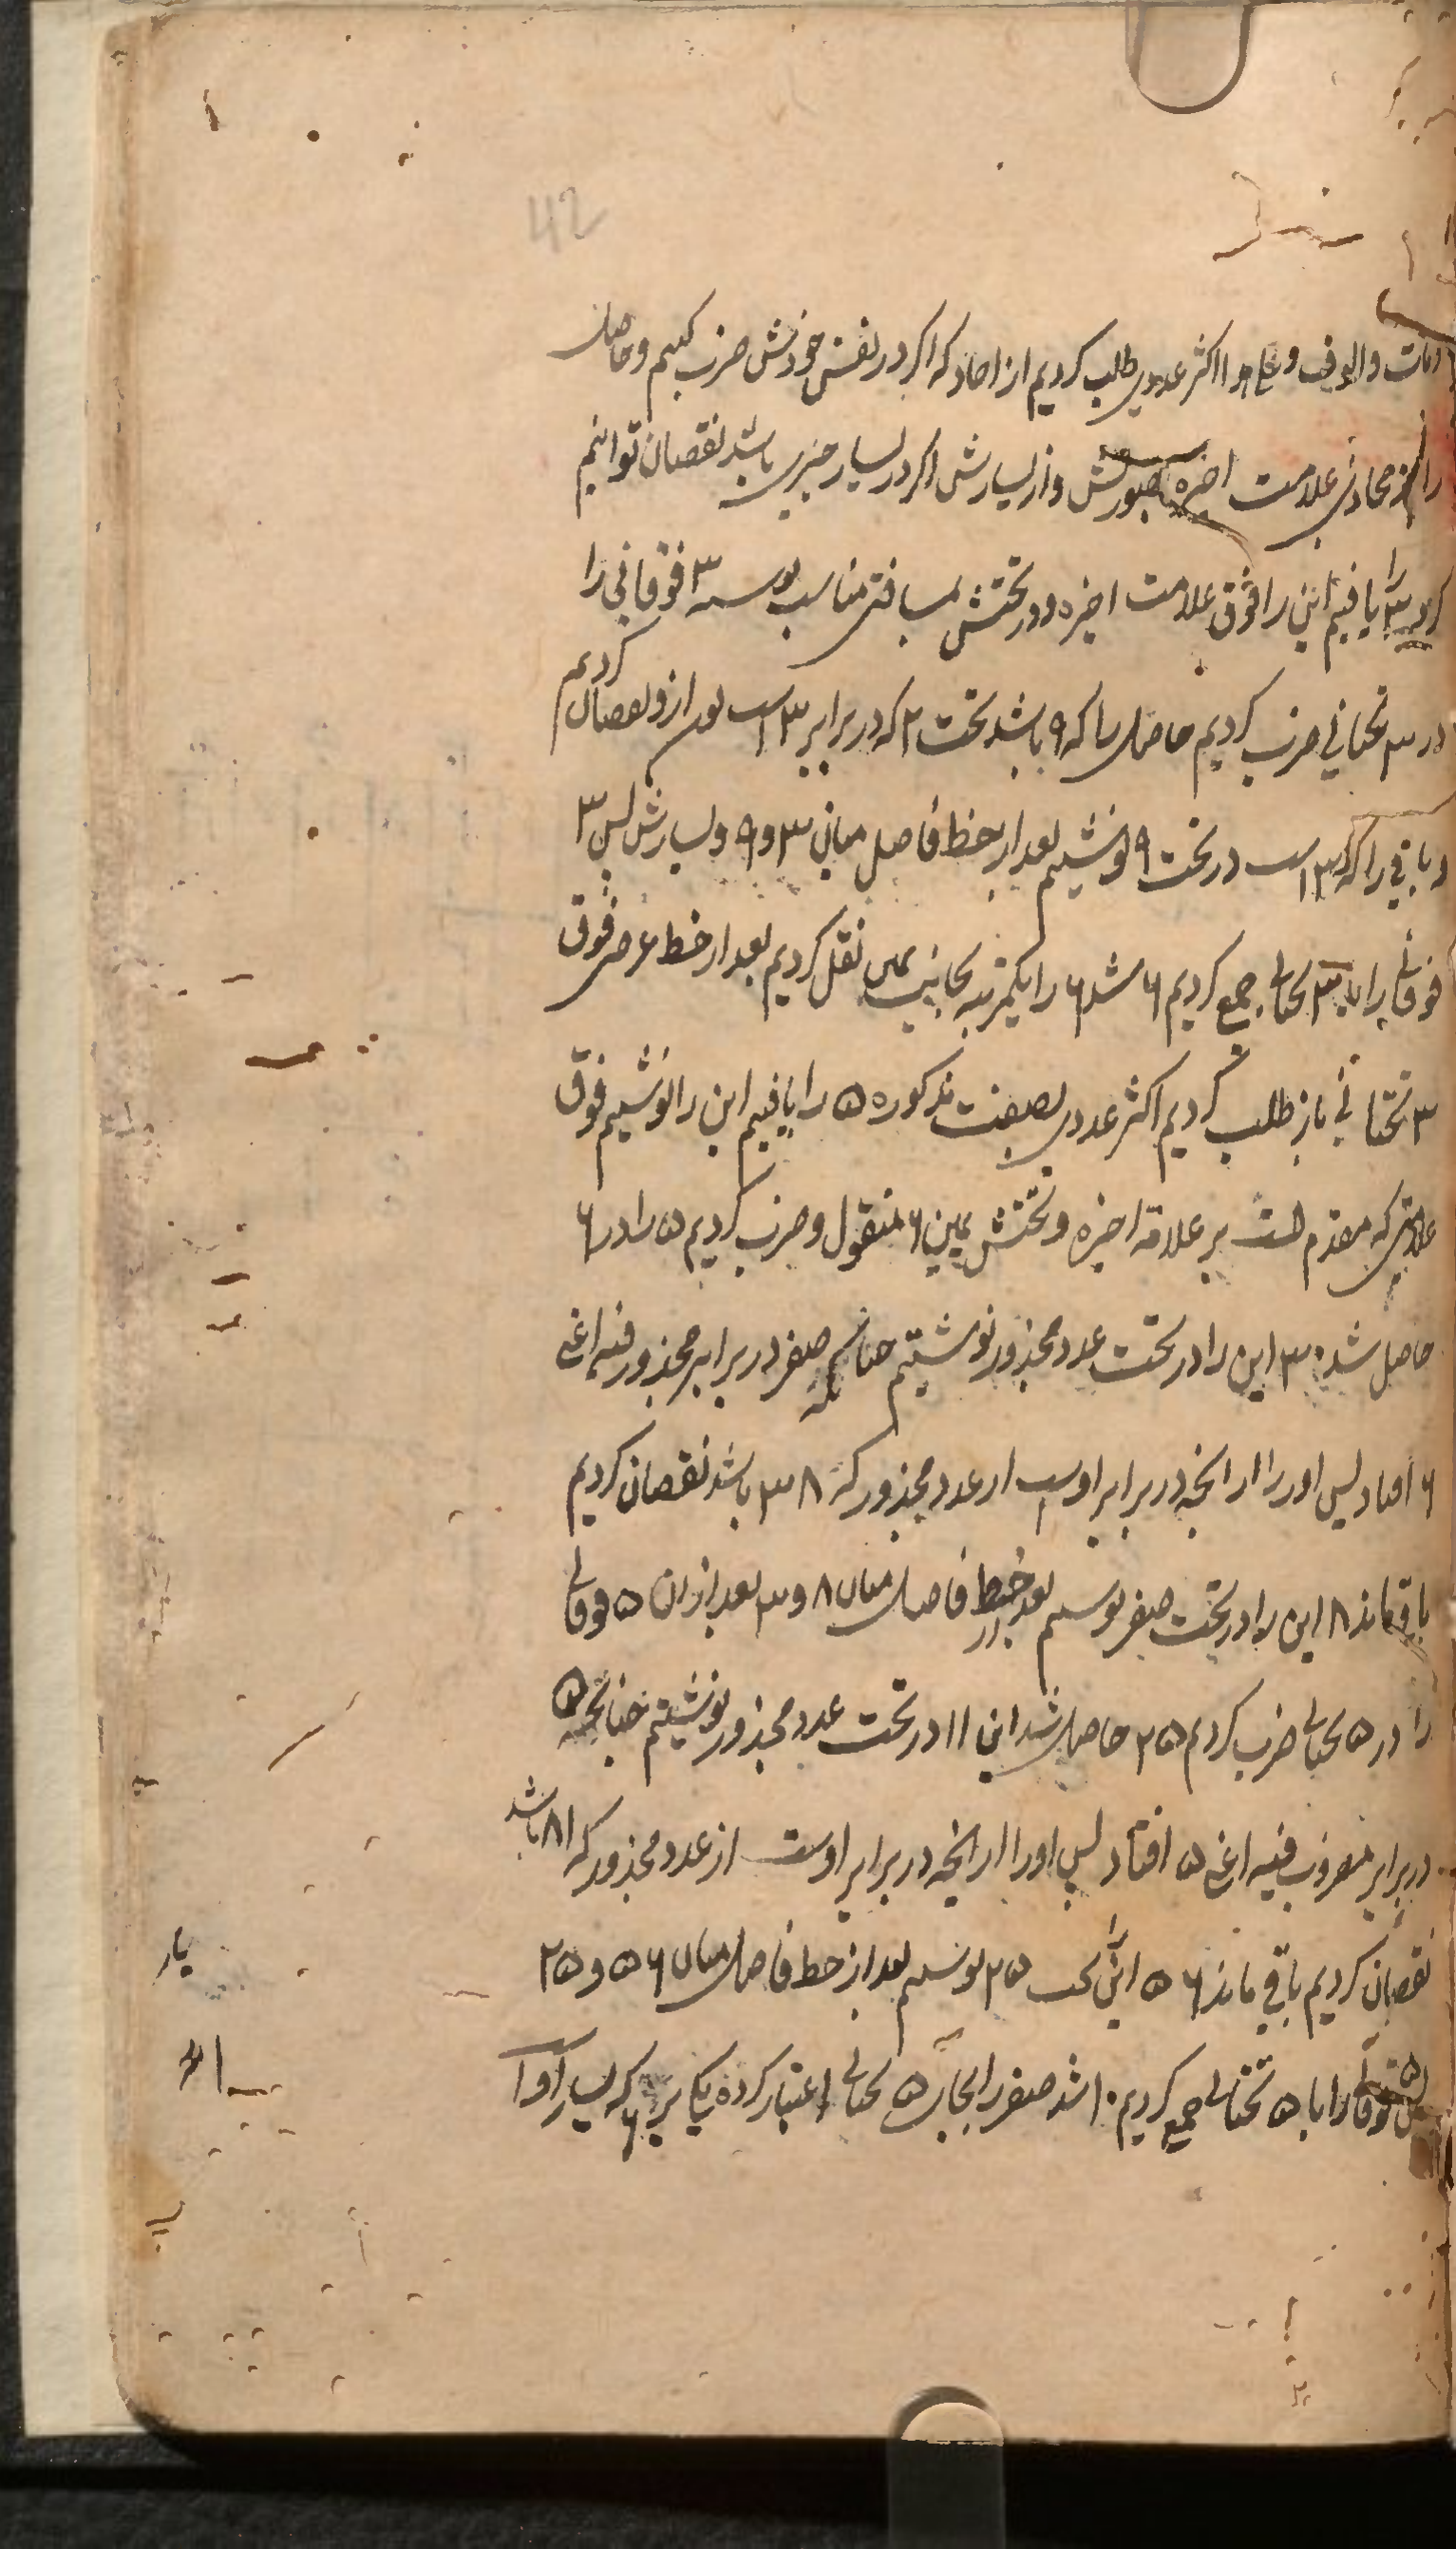 42
و مآت و الوف و اکثر عددی طلب کردیم از احاد که اکر در نفس خودش ضرب کنیم و حاصل
را از محاذی علامت اخیره و از یسارش اکر در یسار چیزی باشد نقصان توانیم
کرد ۳ را یافتیم این را فوق علامت اخیره و در تحتش بمسافتی مناسب نوشته ۳ فوقانی را
در ۳ تحتانی ضرب کردیم حاصل را که ۹ باشد تحت ۲ که در برابر ۳ است از و نقصان کردیم
و باقی را که ۳ است در تحت ۹ نوشتیم بعد از خط فاصل میان ۳ و ۹ و یسارش پس ۳
فوقانی را با ۳ تحتانی جمع کردیم ۶ شد ۶ را یکمرتبه بجانب یمین نقل کردیم بعد از خط عرضی فوق
۳ تحتانی باز طلب کردیم اکثر عددی بصفت مذکوره ۵ را یافتیم این را نوشتیم فوق
علامتی که مقدم است بر علامة اخیره و تحتش یمین ۶ منقول و ضرب کردیم ۵ را در ۶
حاصل شد ۳۰ این را در تحت عدد مجذور نوشتیم چنانکه صفر در برابر مجذور فیه اعنی
۶ افتاد پس او را از آنچه در برابر اوست از عدد مجذور که ۳۸ باشد نقصان کردیم
باقیماند ۸ این را در تحت صفر نوشتیم بعد از خط فاصل میان ۸ و ۳ بعد از ان ۵ فوقانی
را در ۵ تحتانی ضرب کردیم ۲۵ حاصل شد این را در تحت عدد مجذور نوشتیم چنانچه ۵
در برابر مضروب فیه اعنی ۵ افتاد پس او را از آنچه در برابر اوست از عدد مجذور که ۸۱ باشد
نقصان کردیم باقی ماند ۵۶ این را تحت ۲۵ نوشتیم بعد از خط فاصل میان ۵۶ و ۲۵
پس ۵ فوقانی را با ۵ تحتانی جمع کردیم ۱۰ شد صفر را بجای ۵ تحتانی اعتبار کرده یکی بر ۶ که یسار او